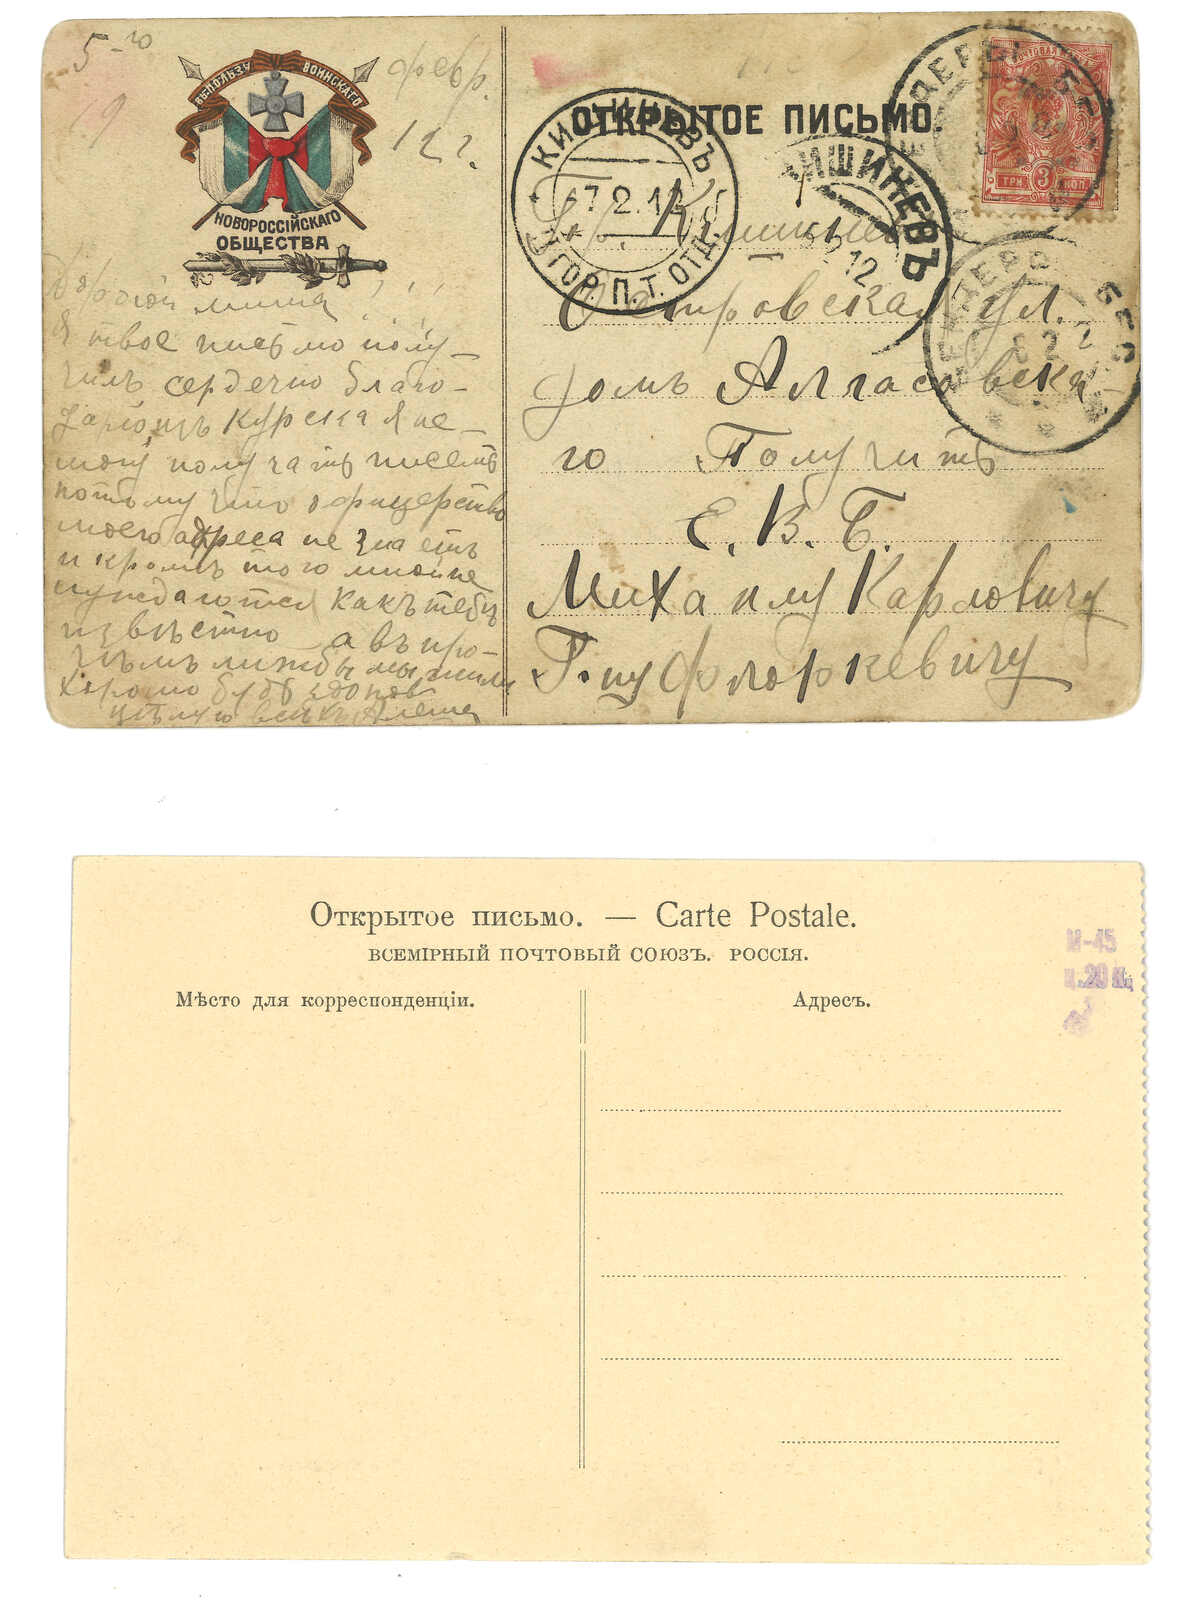 5-го
февр.
12 г.
ВЪ ПОЛЬЗУ ВОИНСКАГО
НОВОРОССІЙСКАГО
ОБЩЕСТВА
Дорогой миша!!!
Я твое письмо полу-
чилъ сердечно благо-
дарю изъ Курска я не
могу получать писемъ
потому что офицерство
моего адреса не знаетъ
и кромѣ того мною не
нуждаются какъ тебѣ
извѣстно а въ про-
чемъ лишь бы мы жили
хорошо будь здоровъ
цѣлую всѣхъ Алеша
ОТКРЫТОЕ ПИСЬМО
КИШИНЕВЪ
7.2.12
ГОР. П. Т. ОТД.
КИШИНЕВЪ
2 12
БЕНДЕРЫ БЕС
БЕНДЕРЫ БЕС
ТРИ 3 КОП.
Гор. Кишинев
Петровская ул.
домъ Алласовска-
го Получить
Е. В. Б.
Михаилу Карловичу
Открытое письмо. — Carte Postale.
ВСЕМІРНЫЙ ПОЧТОВЫЙ СОЮЗЪ. РОССІЯ.
М-45
ц. 20 к.
Мѣсто для корреспонденціи.
Адресъ.